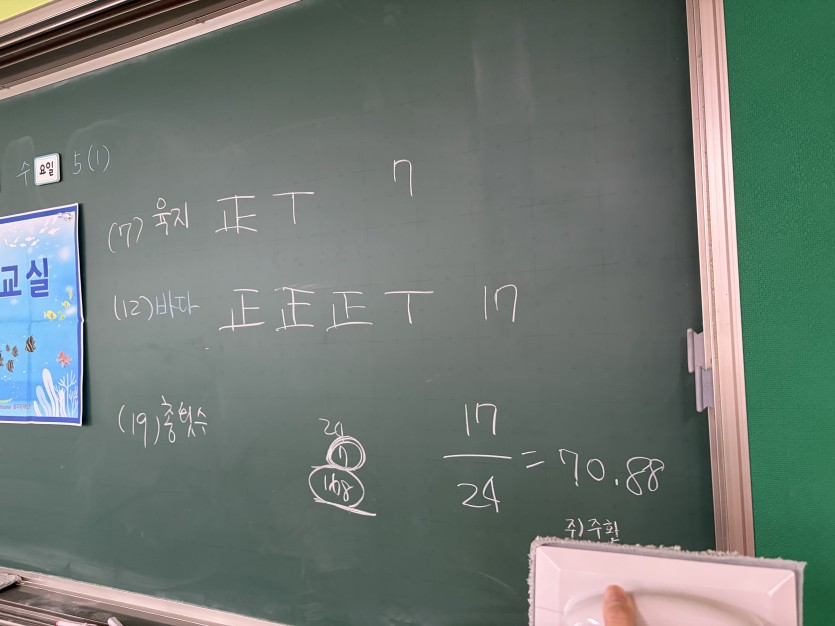 수 요일 5(1)
교실
(7) 육지 正 T 7
(12) 바다 正 正 正 T 17
(19) 총횟수
24
7
168
17
24
= 70.88
주)주환